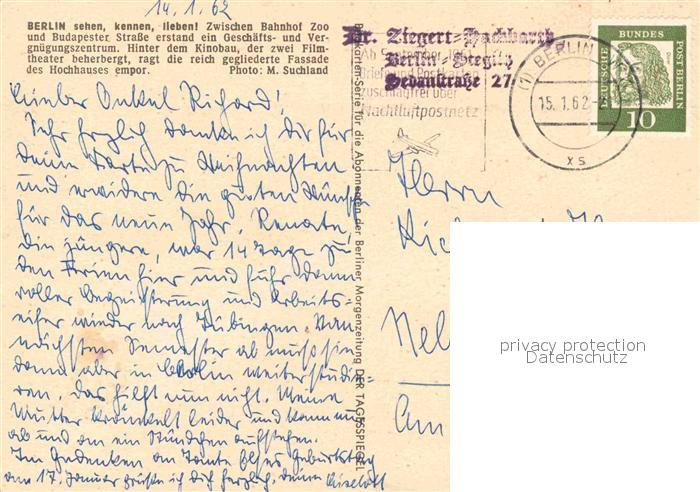 14.1.62
BERLIN sehen, kennen, lieben! Zwischen Bahnhof Zoo
und Budapester Straße erstand ein Geschäfts- und Ver-
gnügungszentrum. Hinter dem Kinobau, der zwei Film-
theater beherbergt, ragt die reich gegliederte Fassade
des Hochhauses empor. Photo: M. Suchland
Lieber Onkel Richard!
Sehr herzlich danke ich dir für
deine Karte zu Weihnachten
und erwidere die guten Wünsche
für das neue Jahr. Renate,
die jüngere, war 14 Tage zu
den Ferien hier und fuhr dann
voller Begeisterung und Arbeits-
eifer wieder nach Tübingen. Vom
nächsten Semester ab muss sie
dann aber in Berlin weiterstudie-
ren, das hilft nun nicht. Meine
Mutter kränkelt leider und kann nur
ab und an ein Stündchen aufstehen.
Im Gedenken an Tante Geburtstag
am 17. Januar grüße ich dich herzlich, deine Liselott
Postkarten-Serie für die Abonnenten der Berliner Morgenzeitung DER TAGESSPIEGEL
Dr. Ziegert-Hackbarth
Berlin-Steglitz
Sedanstraße 27
Ab September 1961
Briefe und Post
zuschlagfrei über
Nachtluftpostnetz
(1) BERLIN
15.1.62
xs
DEUTSCHE BUNDES
POST BERLIN
10
Herrn
Am
privacy protection
Datenschutz